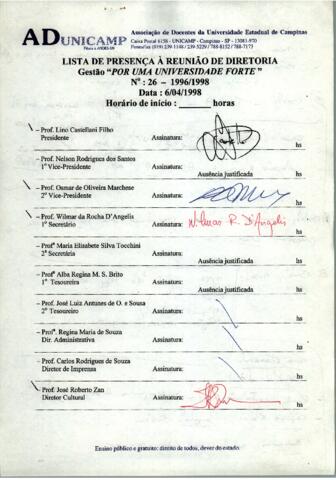 ADUNICAMP
Associação de Docentes da Universidade Estadual de Campinas
Caixa Postal 6158 - UNICAMP - Campinas - SP - 13083-970
Fone/fax (019) 239-1148 / 239-5229 / 788-8152 / 788-7175
LISTA DE PRESENÇA À REUNIÃO DE DIRETORIA
Gestão "POR UMA UNIVERSIDADE FORTE"
Nº : 26 - 1996/1998
Data : 6/04/1998
Horário de início : ______ horas
- Prof. Lino Castellani Filho
Presidente
Assinatura:
hs
- Prof. Nelson Rodrigues dos Santos
1º Vice-Presidente
Assinatura:
Ausência justificada
hs
- Prof. Osmar de Oliveira Marchese
2º Vice-Presidente
Assinatura:
hs
- Prof. Wilmar da Rocha D'Angelis
1º Secretário
Assinatura:
Wilmar R. D'Angelis
hs
- Profª Maria Elizabete Silva Tocchini
2ª Secretária
Assinatura:
Ausência justificada
hs
- Profª Alba Regina M. S. Brito
1ª Tesoureira
Assinatura:
Ausência justificada
hs
- Prof. José Luiz Antunes de O. e Sousa
2º Tesoureiro
Assinatura:
hs
- Profª. Regina Maria de Souza
Dir. Administrativa
Assinatura:
hs
- Prof. Carlos Rodrigues de Souza
Diretor de Imprensa
Assinatura:
hs
- Prof. José Roberto Zan
Diretor Cultural
Assinatura:
hs
Ensino público e gratuito: direito de todos, dever do estado.